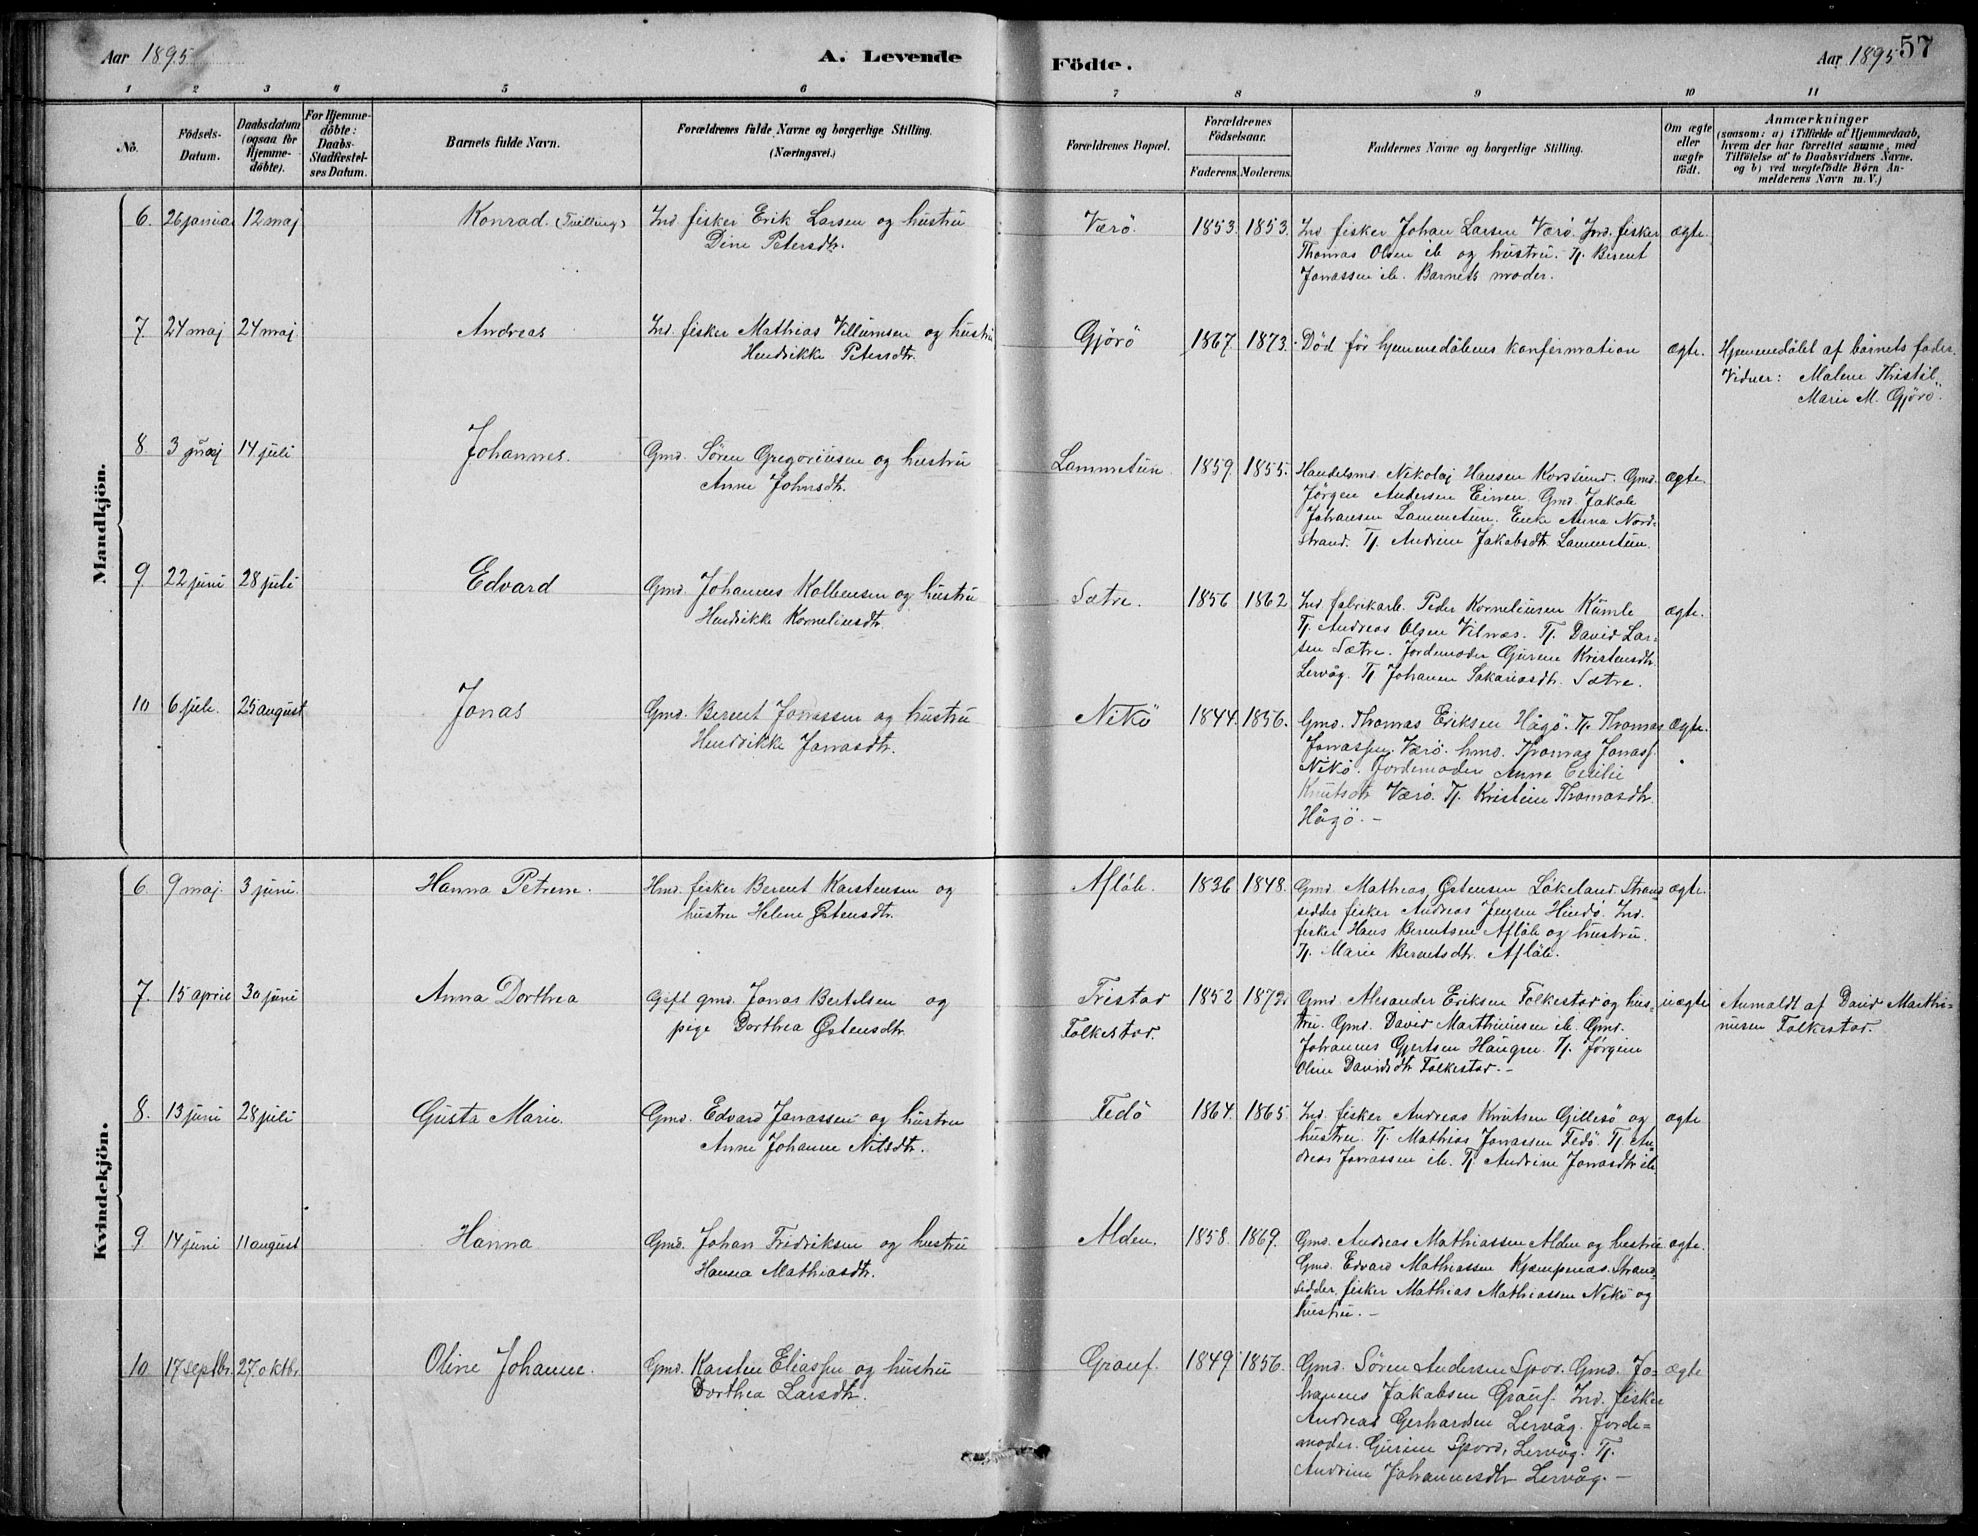 Aar 1895
A. Levende
Födte.
Aar 1895
57
1 2 3 4 5 6 7 8 9 10 11
No.
Födsels-
Datum.
Daabsdatum
(ogsaa for
Hjemme-
döbte).
For Hjemme-
döbte:
Daabs-
Stadfæstel-
ses Datum.
Barnets fulde Navn.
Forældrenes fulde Navne og borgerlige Stilling.
(Næringsvei.)
Forældrenes Bopæl.
Forældrenes
Födselsaar.
Faderens. Moderens.
Faddernes Navne og borgerlige Stilling.
Om ægte
eller
uægte
födt.
Anmærkninger
(saasom: a) i Tilfælde af Hjemmedaab,
hvem der har forrettet samme, med
Tilföielse af to Daabsvidners Navne.
og b) ved uægtefödte Börn An-
melderens Navn m. V.)
Mandkjön.
6. 26 januar 12 maj Konrad. (Tvilling) Ind. fisker Erik Larsen og hustru
Dine Petersdtr.
Værö 1853. 1853.
Ind. fisker Johan Larsen Værö. Ind. fisker
Thomas Olsen ib og hustru. Tj. Berent
Jonassen ib. Barnets moder.
ægte.
7. 24 maj 24 maj. Andreas Ind. fisker Mathias Villumsen og hustru
Hendrikke Petersdtr.
Gjörö 1867 1873.
Död för hjemmedåbens konfirmation
ægte.
Hjemmedöbt af barnets fader.
Vidner: Malene Thistil
Marie M. Gjörö.
8. 3 14 juli Johannes. Gmd. Søren Gregoriusen og hustru
Anne Johnsdtr.
Lammetun 1859. 1855.
Handelsmd. Nikolaj Hansen Korssund. Gmd.
Jörgen Andersen Eirren. Gmd. Jakob
Johansen Lammetun. Enke Anna Nord-
strand. Tj. Andrine Jakobsdtr. Lammetun.
ægte.
9 22 juni 28 juli Edvard Gmd. Johannes Kolbensen og hustru
Hendrikke Korneliusdtr.
Sætre. 1856 1862
Ind. fabrikarb. Peder Korneliusen Kumle
Tj. Andreas Olsen Vilnæs. Tj. David Lar-
sen Sætre. Jordemoder Gurine Kristensdtr.
Lervåg. Tj Johanne Sakariasdtr. Sætre.
ægte.
10 6 juli. 25 august Jonas Gmd. Berent Jonassen og hustru
Hendrikke Jonasdtr.
Nikö 1844. 1856.
Gmd. Thomas Eriksen Hågö. Tj. Thomas
Jonassen. Værö. Gmd. Thomas Jonass.
Nikö. Jordemoder Anne Cecilie
Knutsdtr Værö. Tj. Kristine Thomasdtr.
Hågö. –
ægte.
Kvindekjön.
6. 9 maj. 3 juni. Hanna Petrine. Hmd. fisker Berent Karstensen og
hustru Helene Østensdtr.
Aflöb. 1836 1848.
Gmd. Mathias Østensen Lökeland. Strand-
sidder fisker Andreas Jensen Hindö. Ind.
fisker Hans Berentsen Aflöb og hustru.
Tj. Marie Berentsdtr. Aflöb.
ægte.
7. 15 april 30 juni Anna Dorthea Gift gmd. Jonas Bertelsen og
pige Dorthea Østensdtr.
Tristad
Folkestad. 1852 1872.
Gmd. Alexander Eriksen Folkestad og hus-
tru. Gmd. David Marthinusen ib. Gmd.
Johannes Gjertsen Haugen. Tj. Jørgine
Oline Davidsdtr Folkestad. –
uægte
Anmeldt af David Marthi-
nusen Folkestad.
8. 13 juni 28 juli Gusta Marie. Gmd. Edvard Jonassen og hustru
Anne Johanne Nilsdtr.
Fedö 1864. 1865.
Ind. fisker Andreas Knutsen Gillesö og
hustru. Tj. Mathias Jonassen Fedö. Tj. An-
dreas Jonassen ib. Tj. Andrine Jonasdtr ib.
ægte
9 14 juni 11 august Hanna Gmd. Johan Fredriksen og hustru
Hanna Mathiasdtr.
Alden. 1858. 1869.
Gmd. Andreas Mathiassen Alden og hustru
Gmd. Edvard Mathiassen Kjempenæs. Strand-
sidder, fisker Mathias Mathiassen Nikö og
hustru. –
ægte.
10 17 septbr. 27. oktbr. Oline Johanne. Gmd. Karsten Eliassen og hustru
Dorthea Larsdtr.
Grauf. 1849 1856.
Gmd. Sören Andersen Spor. Gmd. Jo-
hannes Jakobsen Grauf. Ind. fisker
Andreas Gerhardsen Lervåg. Jorde-
moder. Gurine Spord, Lervåg. Tj.
Andrine Johannesdtr Lervåg. –
ægte